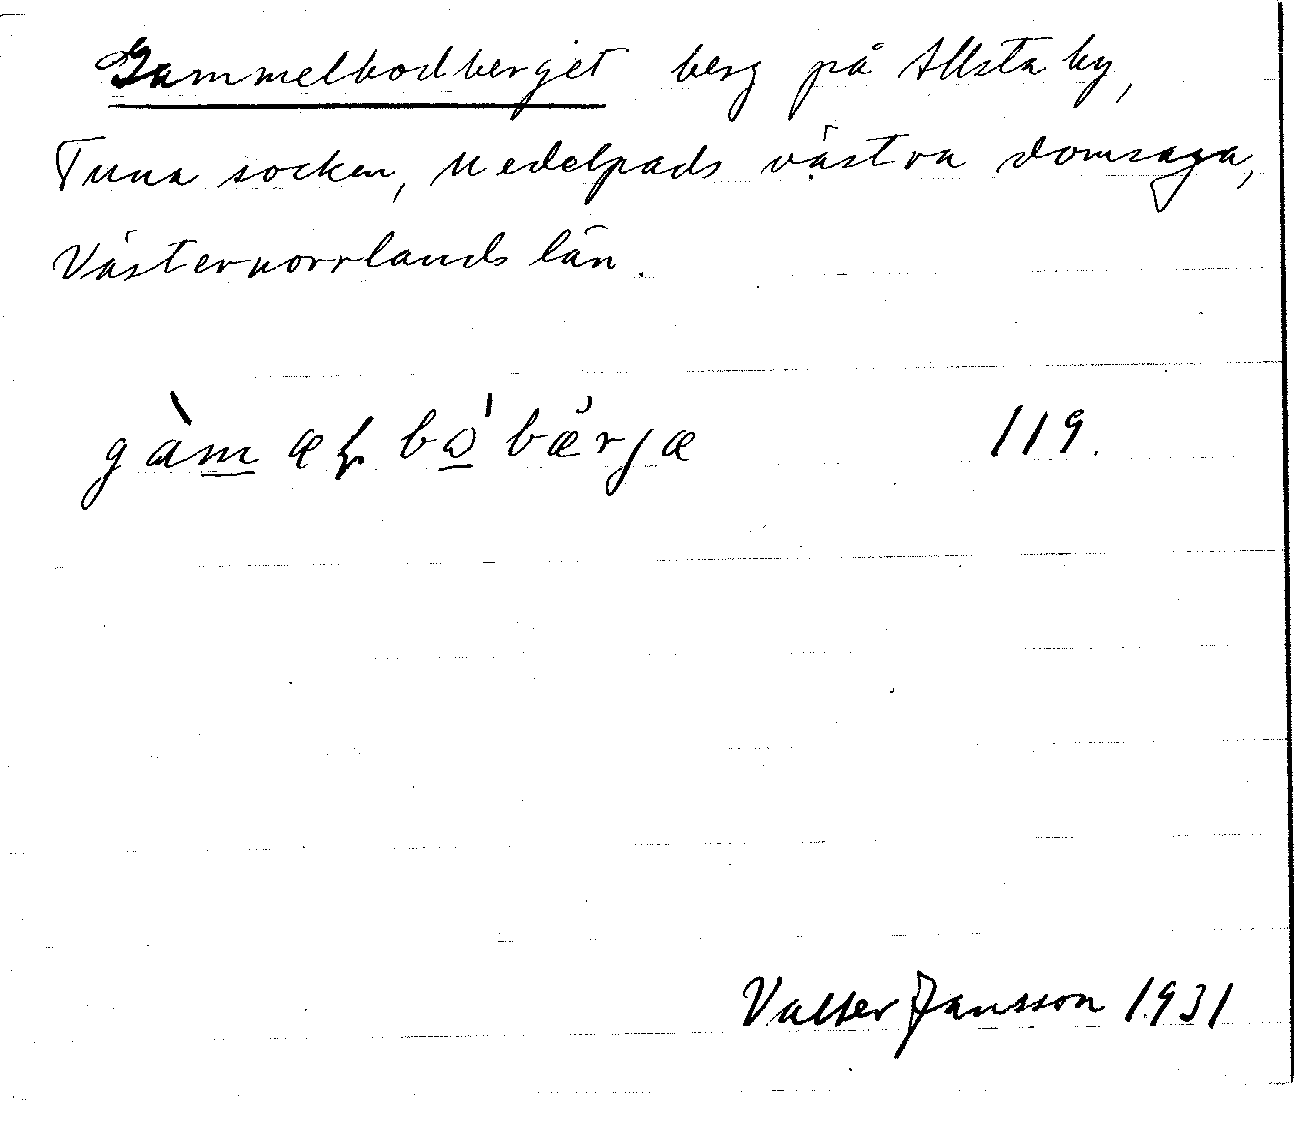 Gammelbodberget berg på Allsta by,
Tuna socken, Medelpads västra domsaga,
Västernorrlands län.
gàm̲ æɽ bɷ̲̍ bæ̆rjæ 119.
Valter Jansson 1931